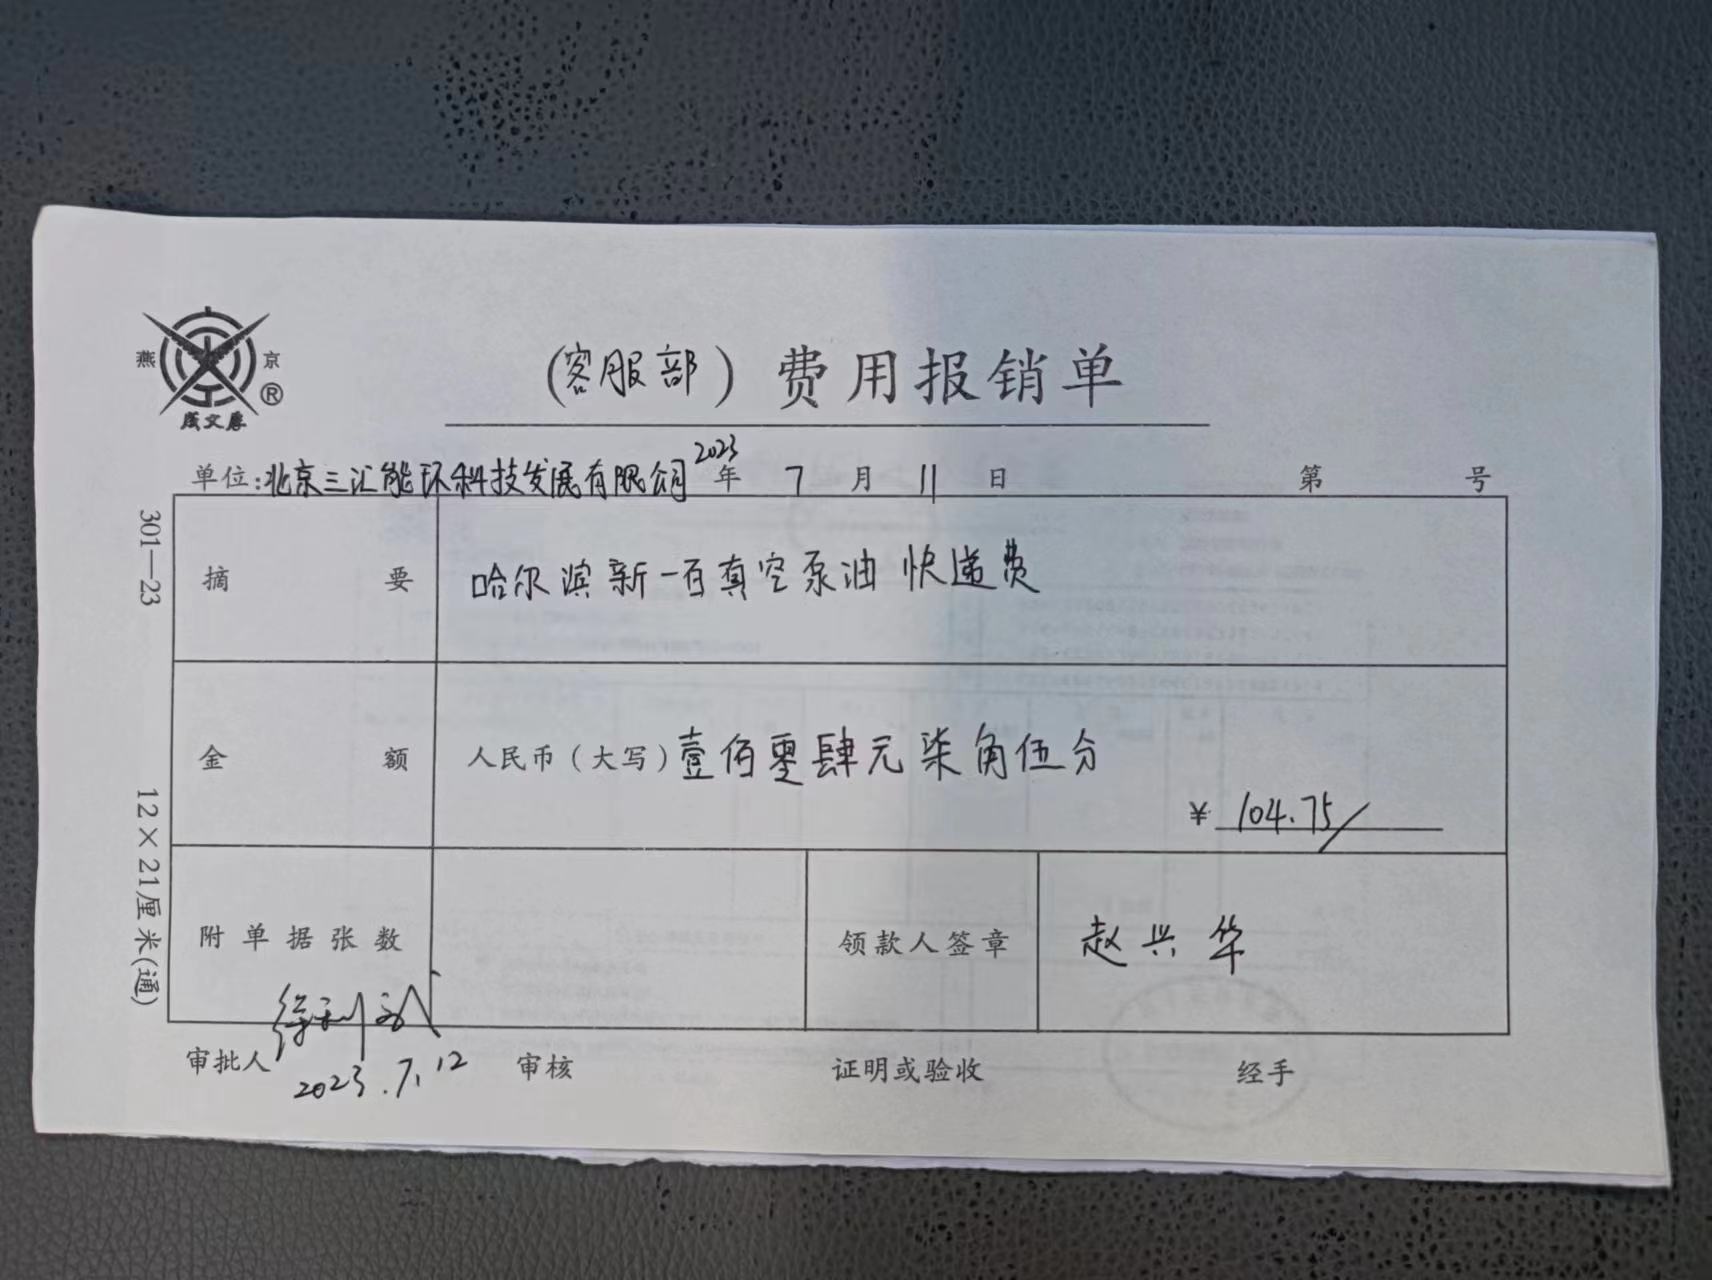 燕 京
®
成文厚
(客服部) 费用报销单
单位:北京三汇能环科技发展有限公司 2023年 7 月 11 日 第 号
301—23
12×21厘米(通)
摘 要 哈尔滨新一百真空泵油快递费
金 额 人民币(大写)壹佰零肆元柒角伍分
¥ 104.75/
附单据张数 领款人签章 赵兴华
审批人 徐利 审核 证明或验收 经手
2023.7.12